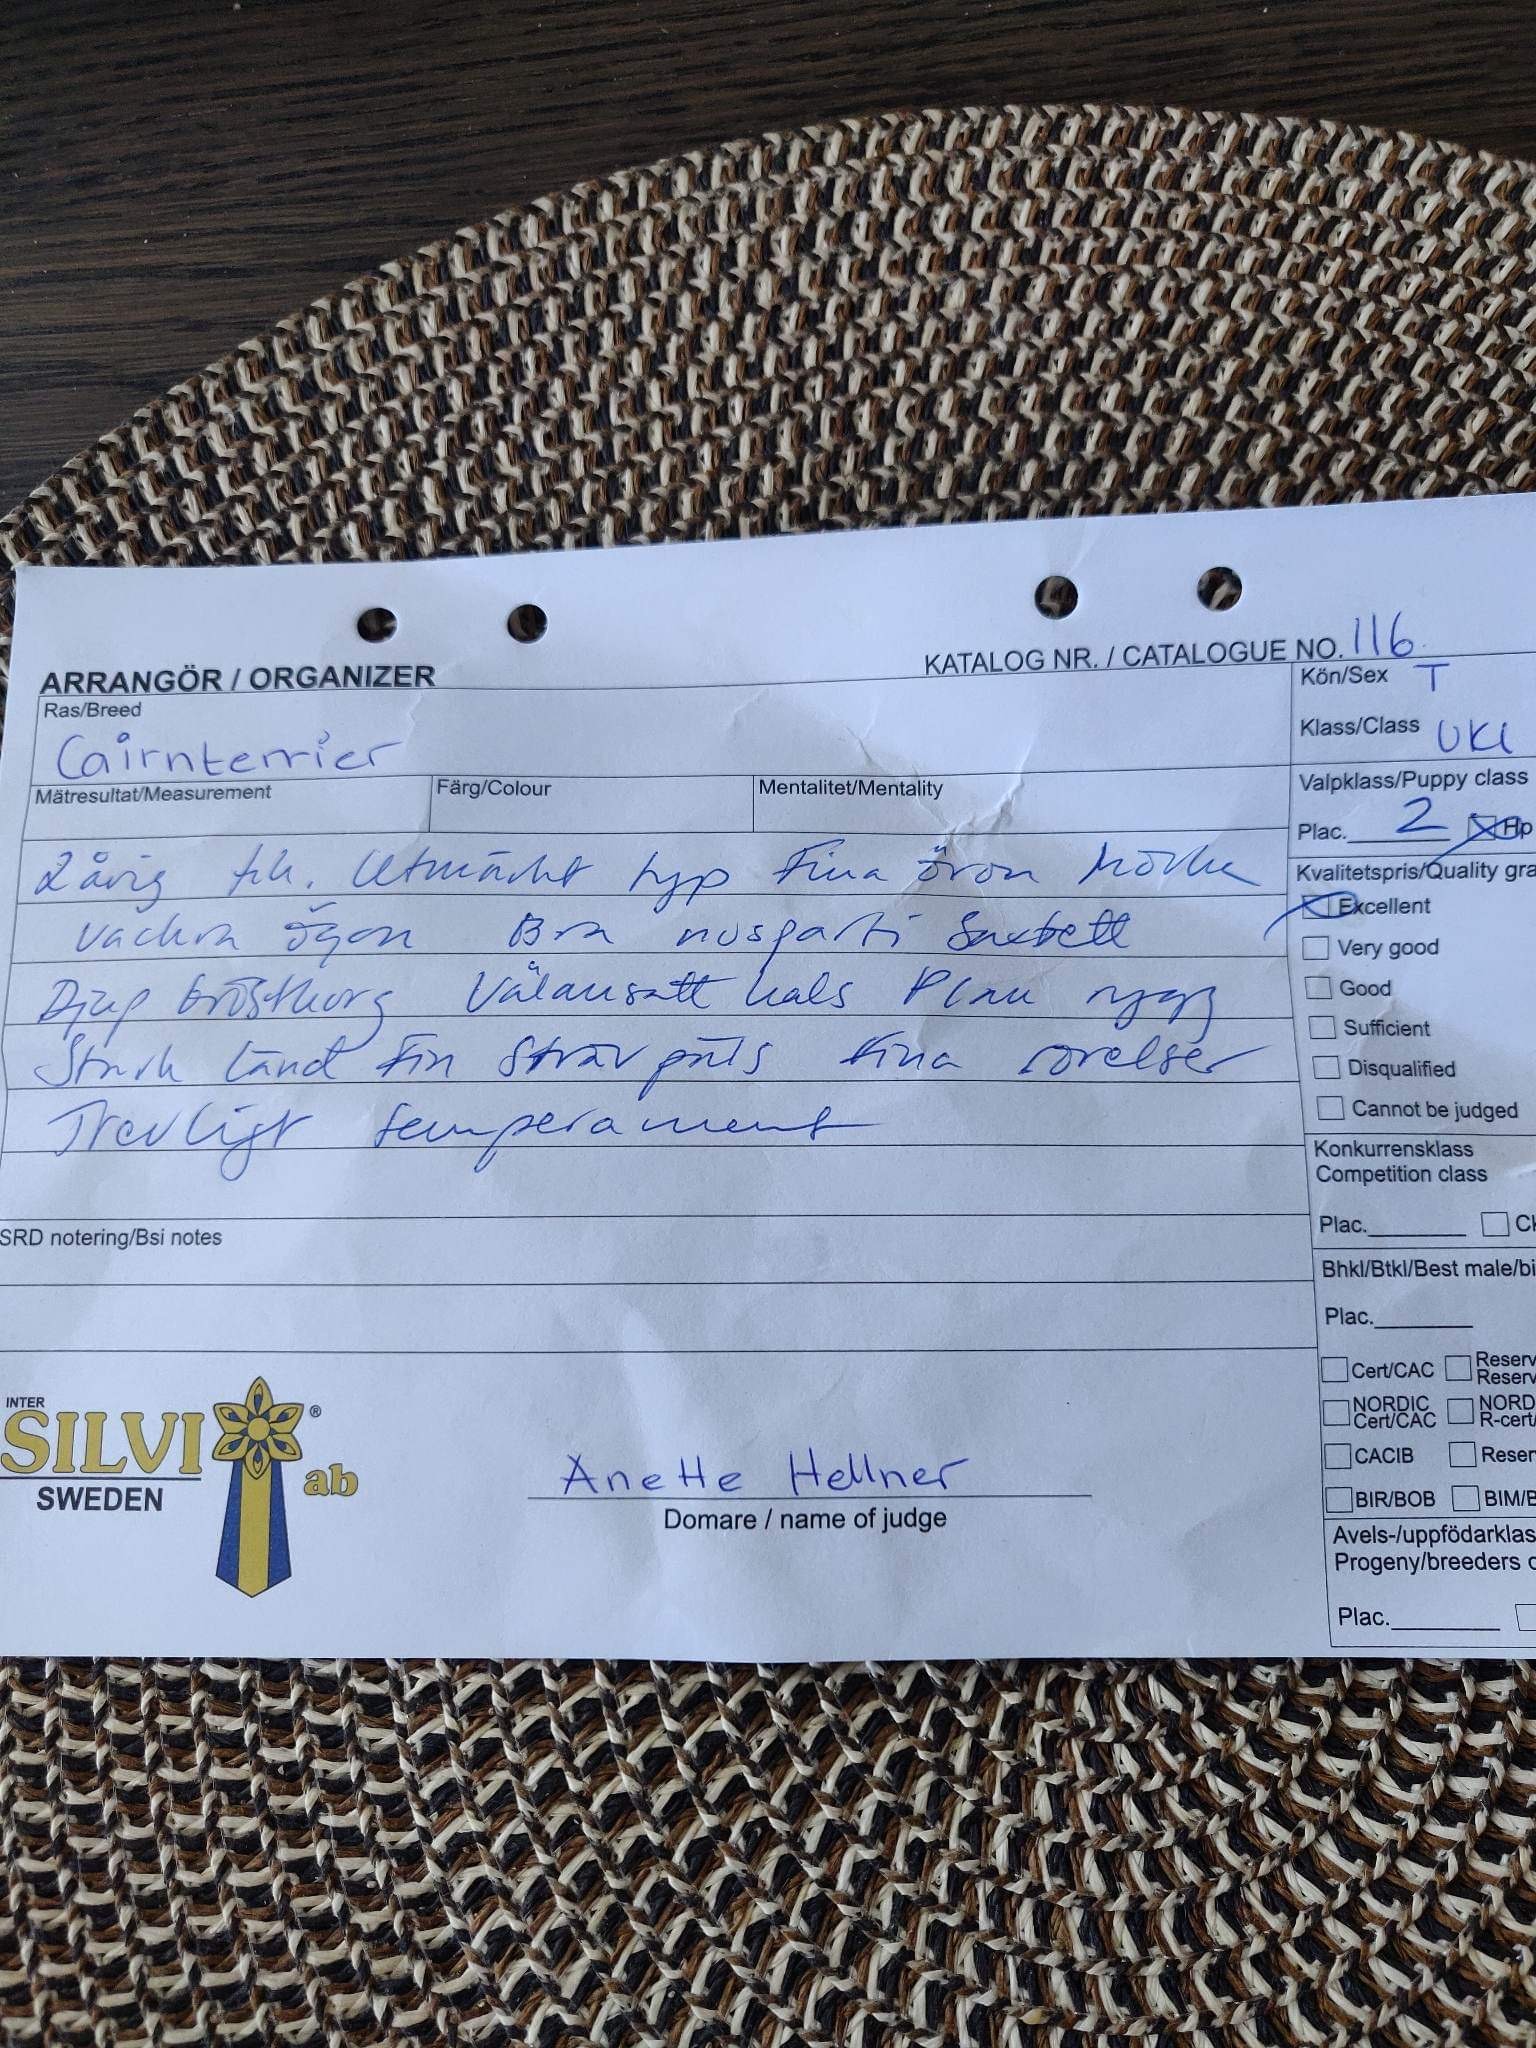 KATALOG NR. / CATALOGUE NO. 116
ARRANGÖR / ORGANIZER
Ras/Breed
Cairnterrier
Kön/Sex T
Klass/Class UKL
Mätresultat/Measurement Färg/Colour Mentalitet/Mentality
Valpklass/Puppy class
Plac. 2 Hp
2 årig tik. Utmärkt typ Fina öron Mörka
vackra ögon Bra nosparti Saxbett
Djup bröstkorg Välansatt hals Plan rygg
Stark länd Fin Sträv päls Fina rörelser
Trevligt temperament
Kvalitetspris/Quality gra
Excellent
Very good
Good
Sufficient
Disqualified
Cannot be judged
Konkurrensklass
Competition class
Plac. CK
SRD notering/Bsi notes
Bhkl/Btkl/Best male/bi
Plac.
Cert/CAC Reserv
Reserv
NORDIC NORD
Cert/CAC R-cert/
CACIB Reser
BIR/BOB BIM/B
Avels-/uppfödarklas
Progeny/breeders c
Plac.
INTER
SILVI ®
ab
SWEDEN
Anette Hellner
Domare / name of judge